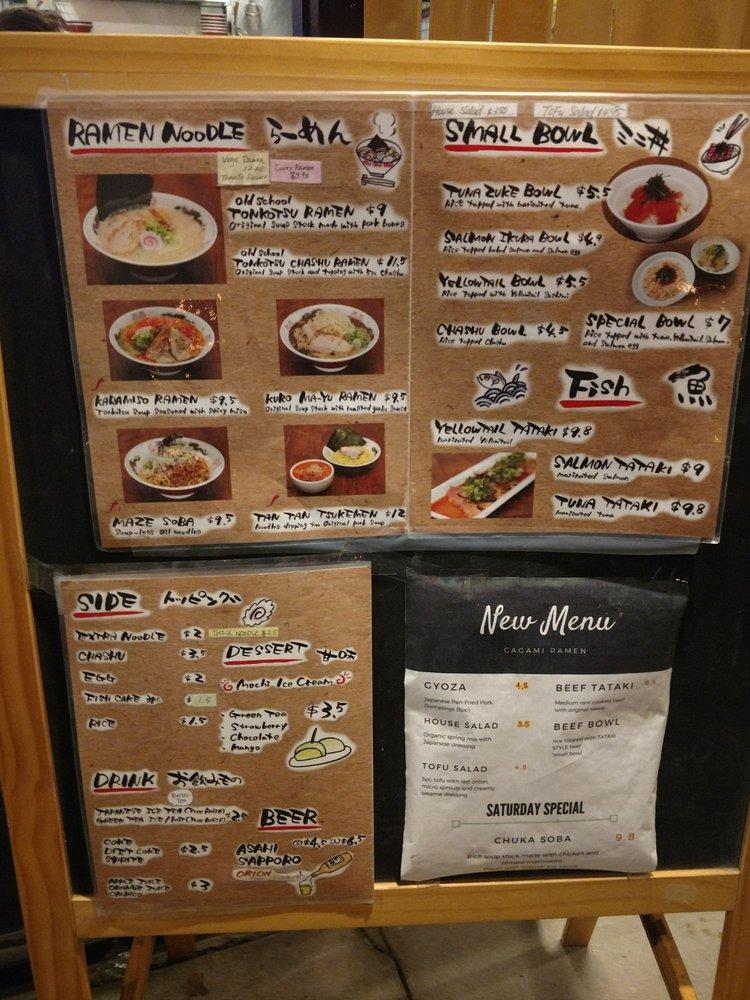 RAMEN NOODLE らーめん
Vege Ramen
Tomato Flavor
Curry Ramen
$9.95
old school
TONKOTSU RAMEN $9
Original Soup Stock made with pork bones
old school
TONKOTSU CHASHU RAMEN $11.5
Original Soup Stock and topping with 5pc Chashu
KARAMISO RAMEN $9.5
Tonkotsu Soup Seasoned with Spicy miso
KURO MA-YU RAMEN $9.5
Original Soup Stock with roasted garlic sauce
MAZE SOBA $9.5
Soup-less oil noodles
TAN TAN TSUKEMEN $12
Noodles dipping to Original pork soup
House Salad $3.50
Tofu Salad $4.95
SMALL BOWL ミニ丼
TUNA ZUKE BOWL $5.5
Rice topped with marinated tuna
SALMON IKURA BOWL $4.9
Rice topped baked salmon and salmon egg
YELLOWTAIL BOWL $5.5
Rice topped with Yellowtail Sashimi
CHASHU BOWL $4.5
Rice topped Chashu
SPECIAL BOWL $7
Rice topped with tuna, Yellowtail, Salmon,
and Salmon egg
Fish 魚
YELLOWTAIL TATAKI $9.8
marinated Yellowtail
SALMON TATAKI $9
marinated Salmon
TUNA TATAKI $9.8
marinated tuna
SIDE トッピング
EXTRA NOODLE $2
THICK NOODLE $2.5
CHASHU $3.5
EGG $2
FISH CAKE $1.5
RICE $1.5
DESSERT 甘味
Mochi Ice Cream
$3.5
・Green Tea
・Strawberry
・Chocolate
・Mango
DRINK お飲みもの
Barley
Tea
JAPANESE ICE TEA
GREEN TEA ICE / HOT
$2.5
COKE
DIET COKE
SPRITE
$2.5
APPLE JUICE
ORANGE JUICE
CALPICO
$3
BEER
ASAHI (S)$4.5 (L)$8.5
SAPPORO
ORION
New Menu
CAGAMI RAMEN
GYOZA 4.5
Japanese Pan-Fried Pork
Dumplings (5pc)
HOUSE SALAD 3.5
Organic spring mix with
Japanese dressing
TOFU SALAD 4.8
5pc tofu with red onion
micro sprouts and creamy
sesame dressing
BEEF TATAKI
Medium rare cooked beef
with original sauce
BEEF BOWL
rice topped with TATAKI
STYLE beef
*small bowl
SATURDAY SPECIAL
CHUKA SOBA 9.8
Rich soup stock made with chicken and
shitake mushroom